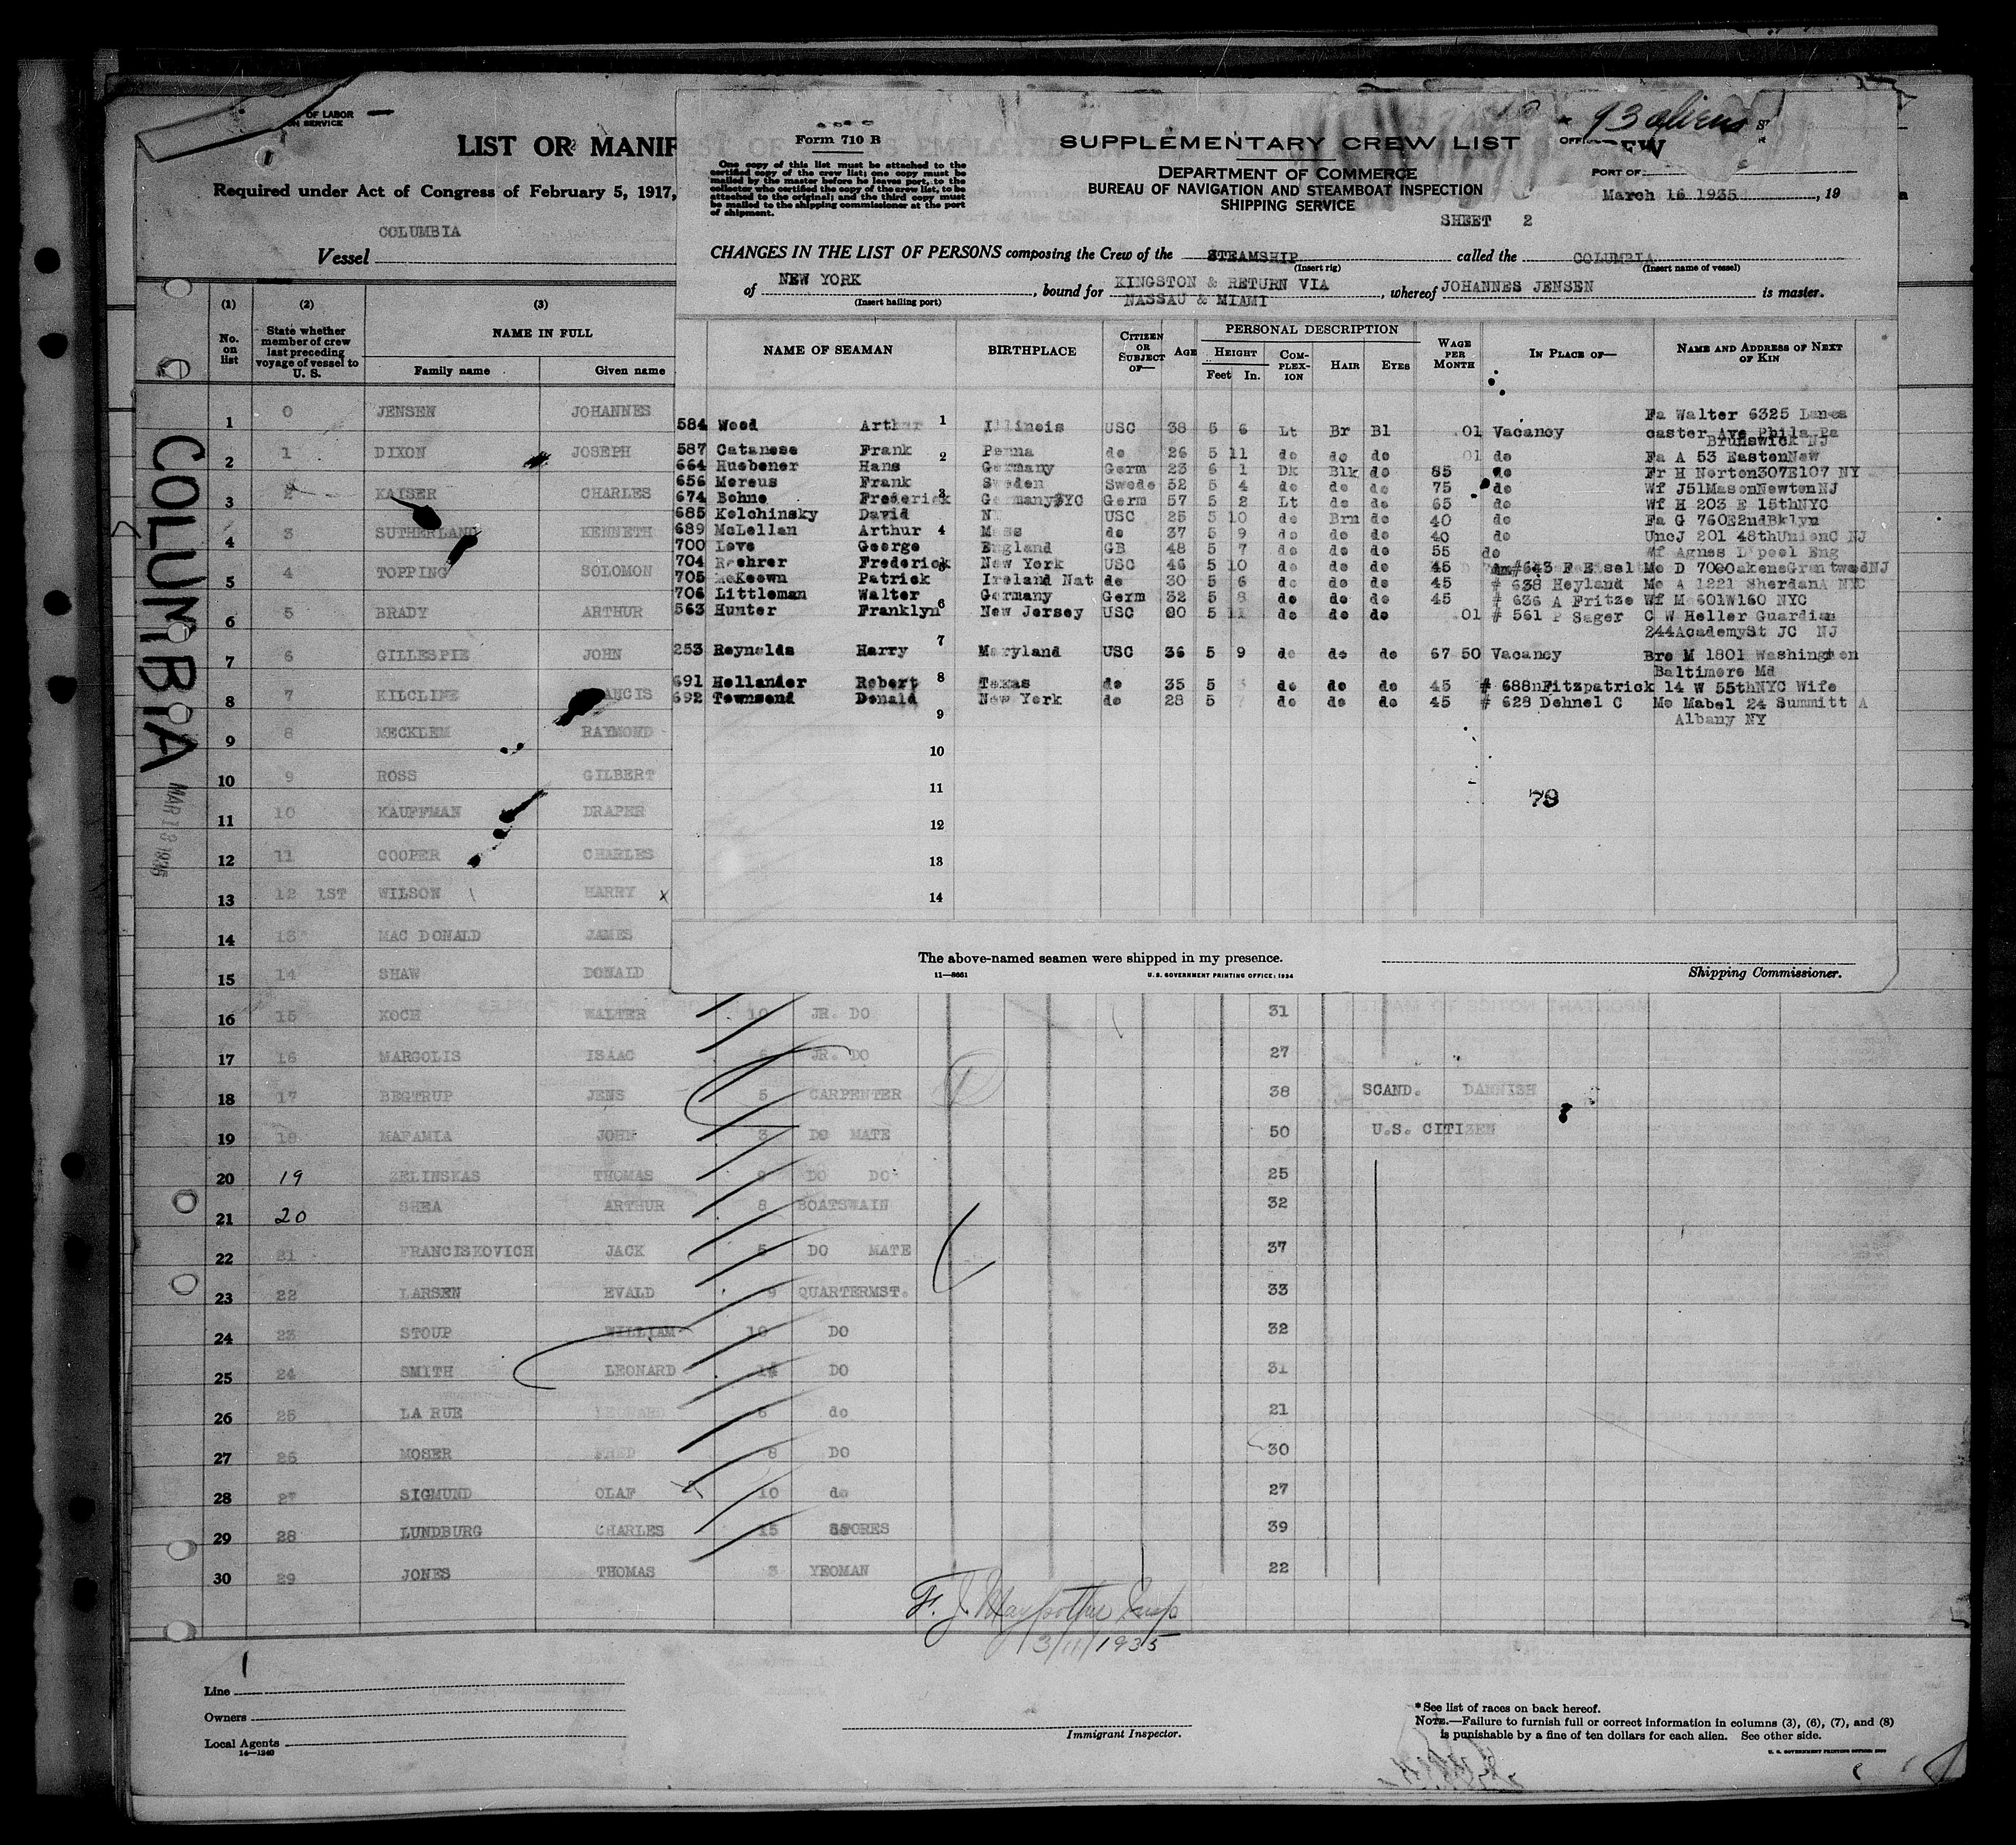 OF LABOR
LIST OR MANIF
Required under Act of Congress of February 5, 1917,
COLUMBIA
Vessel
(1) (2) (3)
No. on list
State whether member of crew last preceding voyage of vessel to U. S.
NAME IN FULL
Family name Given name
1 0 JENSEN JOHANNES
2 1 DIXON JOSEPH
3 2 KAISER CHARLES
4 3 SUTHERLAND KENNETH
5 4 TOPPING SOLOMON
6 5 BRADY ARTHUR
7 6 GILLESPIE JOHN
8 7 KILCLINE
9 8 MECKLEM RAYMOND
10 9 ROSS GILBERT
11 10 KAUFFMAN DRAPER
12 11 COOPER CHARLES
13 12 1ST WILSON HARRY x
14 13 MAC DONALD JAMES
15 14 SHAW DONALD
COLUMBIA
Form 710 B
One copy of this list must be attached to the
certified copy of the crew list; one copy must be
mailed by the master before he leaves port, to the
collector who certified the copy of the crew list, to be
attached to the original; and the third copy must
be mailed to the shipping commissioner at the port
of shipment.
SUPPLEMENTARY CREW LIST
DEPARTMENT OF COMMERCE
BUREAU OF NAVIGATION AND STEAMBOAT INSPECTION
SHIPPING SERVICE
93 aliens
PORT OF
March 16 1935 , 19
SHEET 2
CHANGES IN THE LIST OF PERSONS composing the Crew of the STEAMSHIP called the COLUMBIA
(Insert rig) (Insert name of vessel)
of NEW YORK , bound for KINGSTON & RETURN VIA NASSAU & MIAMI , whereof JOHANNES JENSEN is master.
(Insert hailing port)
NAME OF SEAMAN BIRTHPLACE CITIZEN OR SUBJECT OF— AGE PERSONAL DESCRIPTION WAGE PER MONTH IN PLACE OF— NAME AND ADDRESS OF NEXT OF KIN
HEIGHT COMPLEXION HAIR EYES
Feet In.
Fa Walter 6325 Lanca
584 Wood Arthur 1 Illinois USC 38 5 6 Lt Br Bl .01 Vacancy caster Ave Phila Pa
Brunswick NJ
587 Catanese Frank 2 Penna do 26 5 11 do do do 01 do Fa A 53 EastonNew
664 Huebener Hans Germany Germ 23 6 1 Dk Blk do 85 do Fr H Norton307E107 NY
656 Moreus Frank Sweden Swede 52 5 4 do do do 75 do Wf J51MasonNewtonNJ
674 Bohne Frederick 3 Germany Germ 57 5 2 Lt do do 65 do Wf H 203 E 15thNYC
685 Kolchinsky David USC 25 5 10 do Brn do 40 do Fa G 760E2ndBklyn
689 McLellan Arthur 4 Mass do 37 5 9 do do do 40 do UncJ 201 48thUnionC NJ
700 Love George England GB 48 5 7 do do do 55 do Wf Agnes L'pool Eng
704 Roehrer Frederick 5 New York USC 46 5 10 do do do 45 #643 Mo D 700OakensGrantwodNJ
705 McKeown Patrick Ireland Nat do 30 5 6 do do do 45 # 638 Heyland Mo A 1221 SherdanA NYC
706 Littleman Walter Germany Germ 32 5 8 do do do 45 # 636 A Fritze Wf M 601W160 NYC
563 Hunter Franklyn 6 New Jersey USC 20 5 11 do do do .01 # 561 P Sager C W Heller Guardian
244AcademySt JC NJ
253 Reynolds Harry 7 Maryland USC 36 5 9 do do do 67 50 Vacancy Bro M 1801 Washington
Baltimore Md
691 Hollander Robert 8 Texas do 35 5 do do do 45 # 688nFitzpatrick 14 W 55thNYC Wife
692 Townsend Donald New York do 28 5 do do do 45 # 628 Dehnel C Mo Mabel 24 Summitt A
Albany NY
9
10
11
79
12
13
14
The above-named seamen were shipped in my presence.
11—8661 U. S. GOVERNMENT PRINTING OFFICE: 1934 Shipping Commissioner.
16 15 KOCH WALTER 10 JR. DO 31
17 16 MARGOLIS ISAAC JR. DO 27
18 17 BEGTRUP JENS 5 CARPENTER 38 SCAND. DANNISH
19 18 MAFAMIA JOHN 3 DO MATE 50 U.S. CITIZEN
20 19 ZELINSKAS THOMAS DO DO 25
21 20 SHEA ARTHUR 8 BOATSWAIN 32
22 21 FRANCISKOVICH JACK 5 DO MATE 37
23 22 LARSEN EVALD 9 QUARTERMST. 33
24 23 STOUP WILLIAM 10 DO 32
25 24 SMITH LEONARD DO 31
26 25 LA RUE LEONARD 6 do 21
27 26 MOSER FRED 8 DO 30
28 27 SIGMUND OLAF 10 do 27
29 28 LUNDBURG CHARLES 15 STORES 39
30 29 JONES THOMAS 3 YEOMAN 22
3/11/1935
Line
Owners
Local Agents
14—1240
Immigrant Inspector.
* See list of races on back hereof.
NOTE.—Failure to furnish full or correct information in columns (3), (6), (7), and (8)
is punishable by a fine of ten dollars for each alien. See other side.